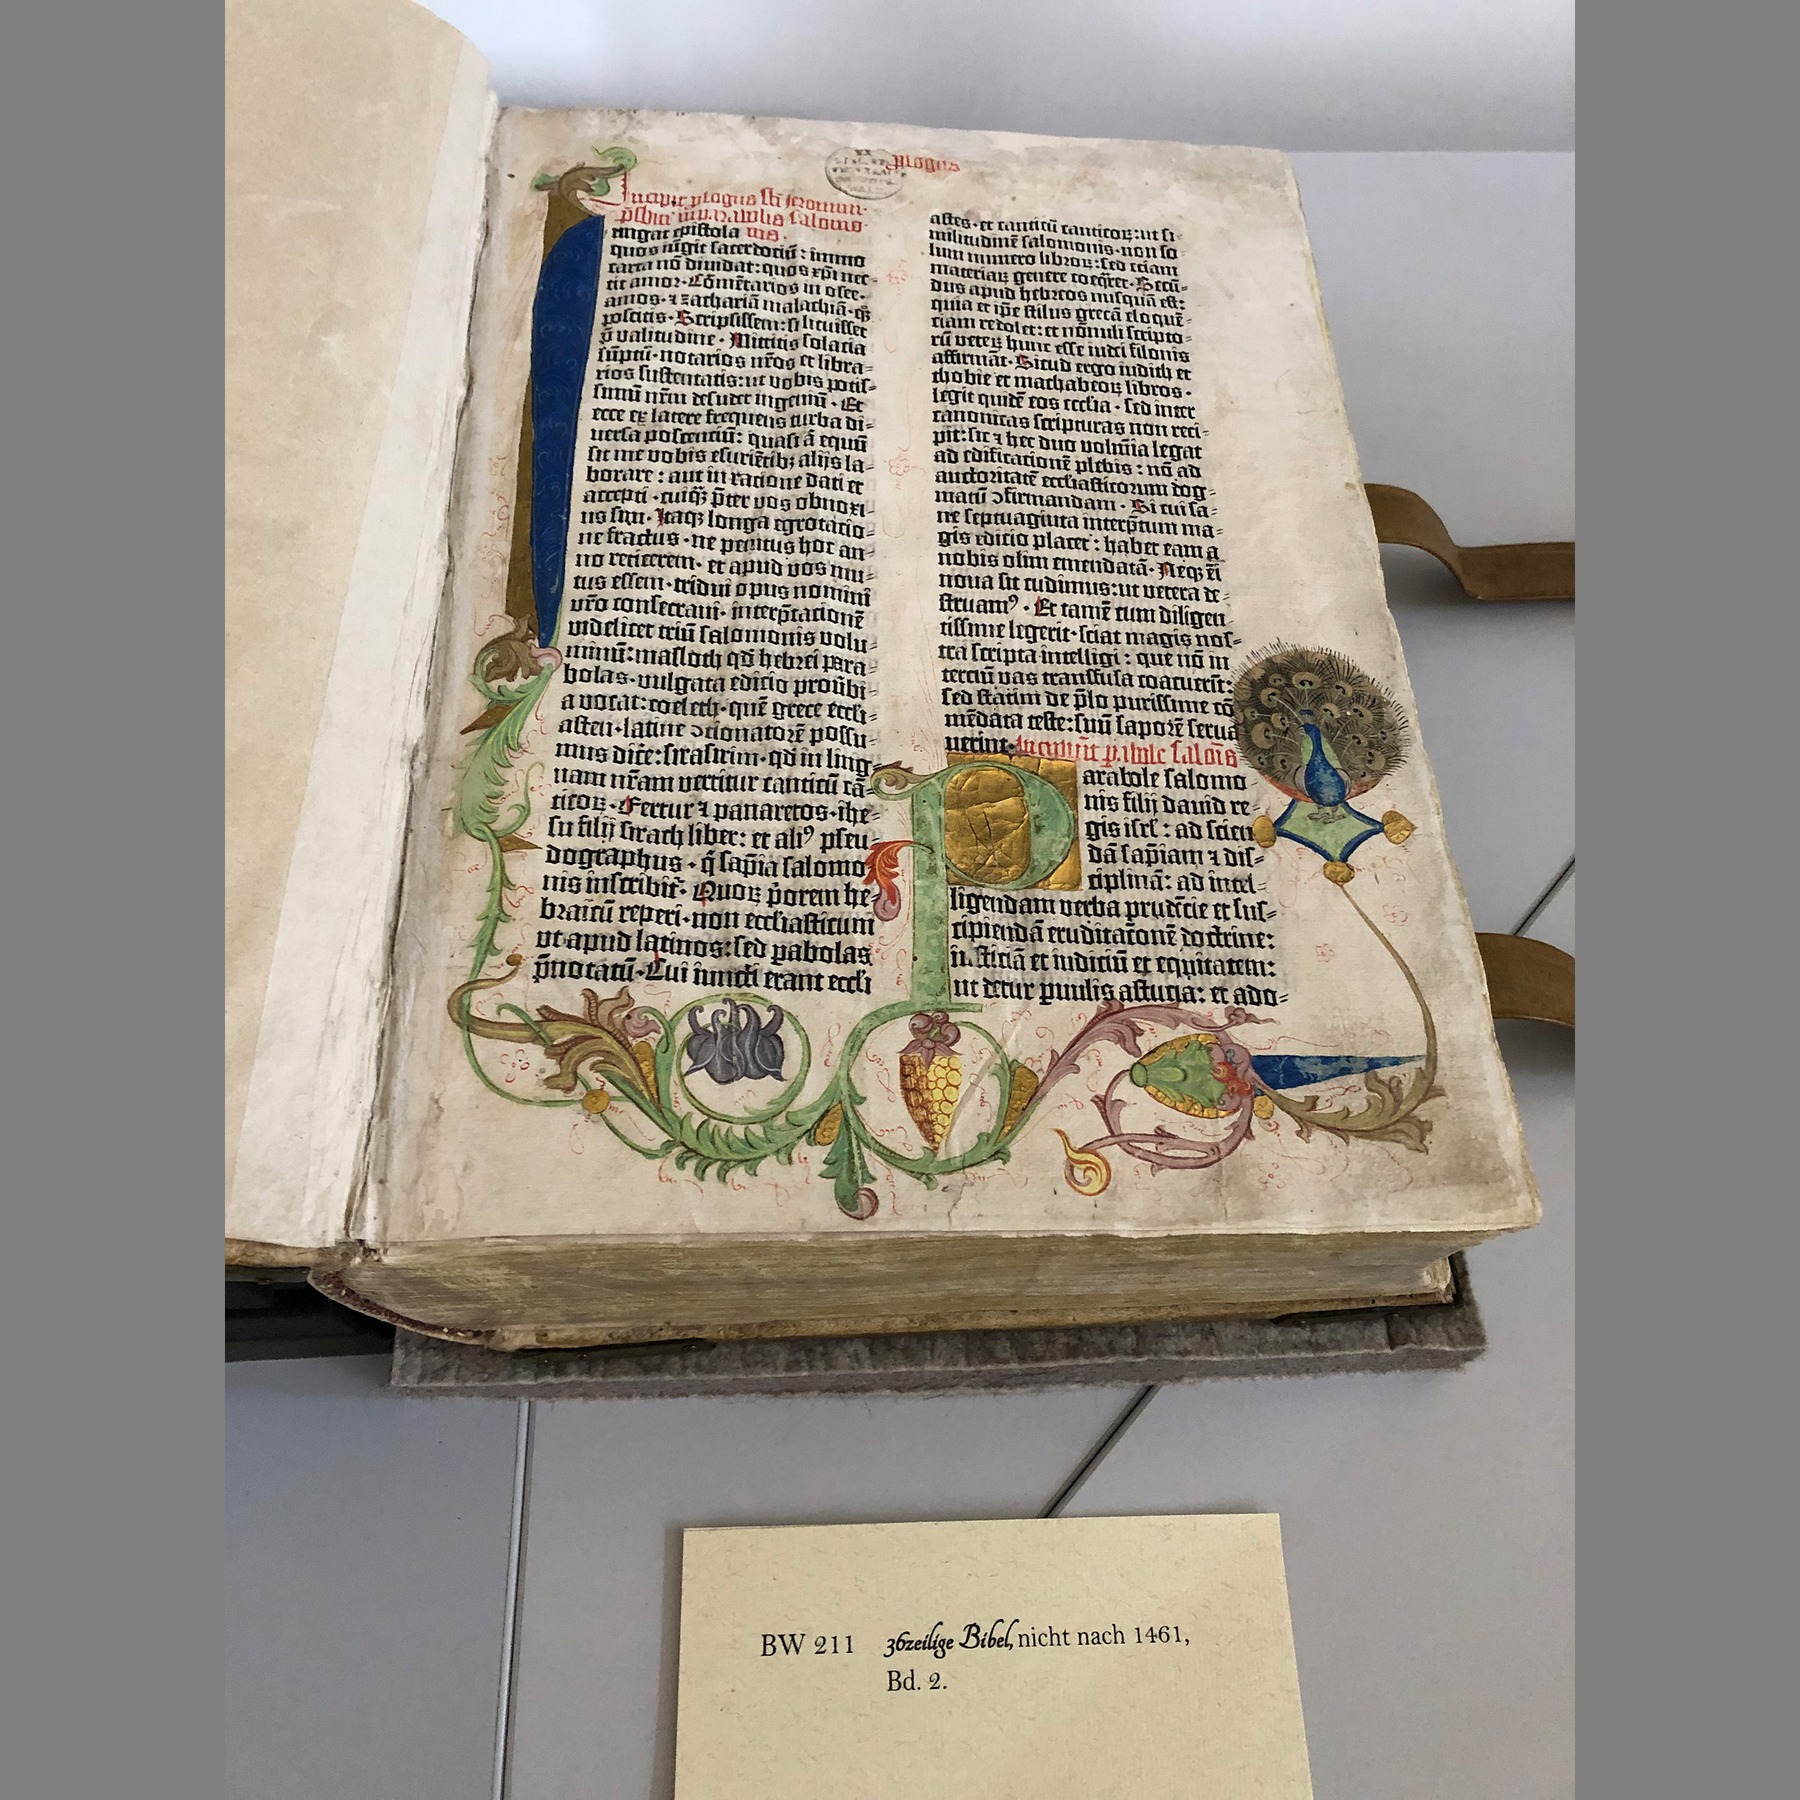 plogus
Incipit plogus sti Jeronimi
pſbiri in parabolis ſalomo-
nis.
ungat epiſtola
quos iūgit ſacerdociū: immo
carta nō diuidat: quos xp̄i nec-
tit amor. Cōmētarios in oſee.
amos. ⁊ zachariā malachiā. q̄
poſcitis. Scripſiſſem: ſi licuiſſet
p̄ valitudine. Mittitis ſolacia
ſūptuū. notarios nr̄os et libra-
rios ſuſtentatis: ut vobis potiſ-
ſimū nr̄m deſudet ingeniū. Et
ecce ex latere frequens turba di-
uerſa poſcentiū: quaſi aut equū
ſit me vobis eſuriētibꝫ alijs la-
borare: aut in racione dati et
accepti. cuiq̄ p̄ter vos obnoxi-
us ſim. Itaqꝫ longa egrotacio-
ne fractus. ne penitus hoc an-
no reticerem. et apud vos mu-
tus eſſem. tridui opus nomini
vr̄o conſecraui. interp̄tacionē
videlicet triū ſalomonis volu-
minū: maſloth qd̄ hebrei para-
bolas. vulgata edicio prou̅bi-
a vocat: coeleth. quē grece eccſi-
aſten. latine ↄcionatorē poſſu-
mus dicē: ſiraſirim. qd̄ in ling-
uam nr̄am vertitur canticū cā-
ticoꝝ. Fertur ⁊ panaretos. ihe-
ſu filij ſirach liber: et aliꝰ pſeu-
dographus. q̄ ſap̄ia ſalomo-
nis inſcribit᷑. Quoꝝ p̄orem he-
braicū reperi. non eccſiaſticum
vt apud latinos: ſed pabolas
p̄notatū. Cui iuncti erant eccſi
aſtes. et canticū canticoꝝ: ut ſi-
militudinē ſalomonis. non ſo-
lum numero libroꝝ: ſed eciam
materiaꝝ genere coeq̄ret. Secū-
dus apud hebreos nuſquā eſt:
quia et ip̄e ſtilus grecā eloquē-
ciam redolet: et nōnulli ſcripto-
rū veteꝝ hunc eſſe iudei filonis
affirmāt. Sicud ergo iudith et
thobie et machabeoꝝ libros.
legit quidē eos eccſia. ſed inter
canonicas ſcripturas non reci-
pit: ſic ⁊ hec duo volumīa legat
ad edificacionē plebis: nō ad
auctoritatē eccſiaſticorum dog-
matū ↄfirmandam. Si cui ſa-
ne ſeptuaginta interp̄tum ma-
gis edicio placet: habet eam a
nobis olim emendatā. Neqꝫ ei̅
noua ſic cudimus: ut vetera de-
ſtruamꝰ. Et tamē cum diligen
tiſſime legerit. ſciat magis noſ-
tra ſcripta intelligi: que nō in
terciū vas tranſfuſa coacuerīt:
ſed ſtatim de p̄lo puriſſime cō
mēdata teſte: ſuū ſaporē ſerua
uerint. Incipiūt p̄abole ſalōis
arabole ſalomo
nis filij dauid re-
gis iſrł: ad ſcien
dā ſap̄iam ⁊ diſ-
ciplinā: ad intel-
ligendam verba prudēcie et ſuſ-
cipiendā eruditacōnē doctrine:
iuſticiā et iudiciū et equitatem:
ut detur p̄uulis aſtucia: et ado-
BW 211 36zeilige Bibel, nicht nach 1461,
Bd. 2.